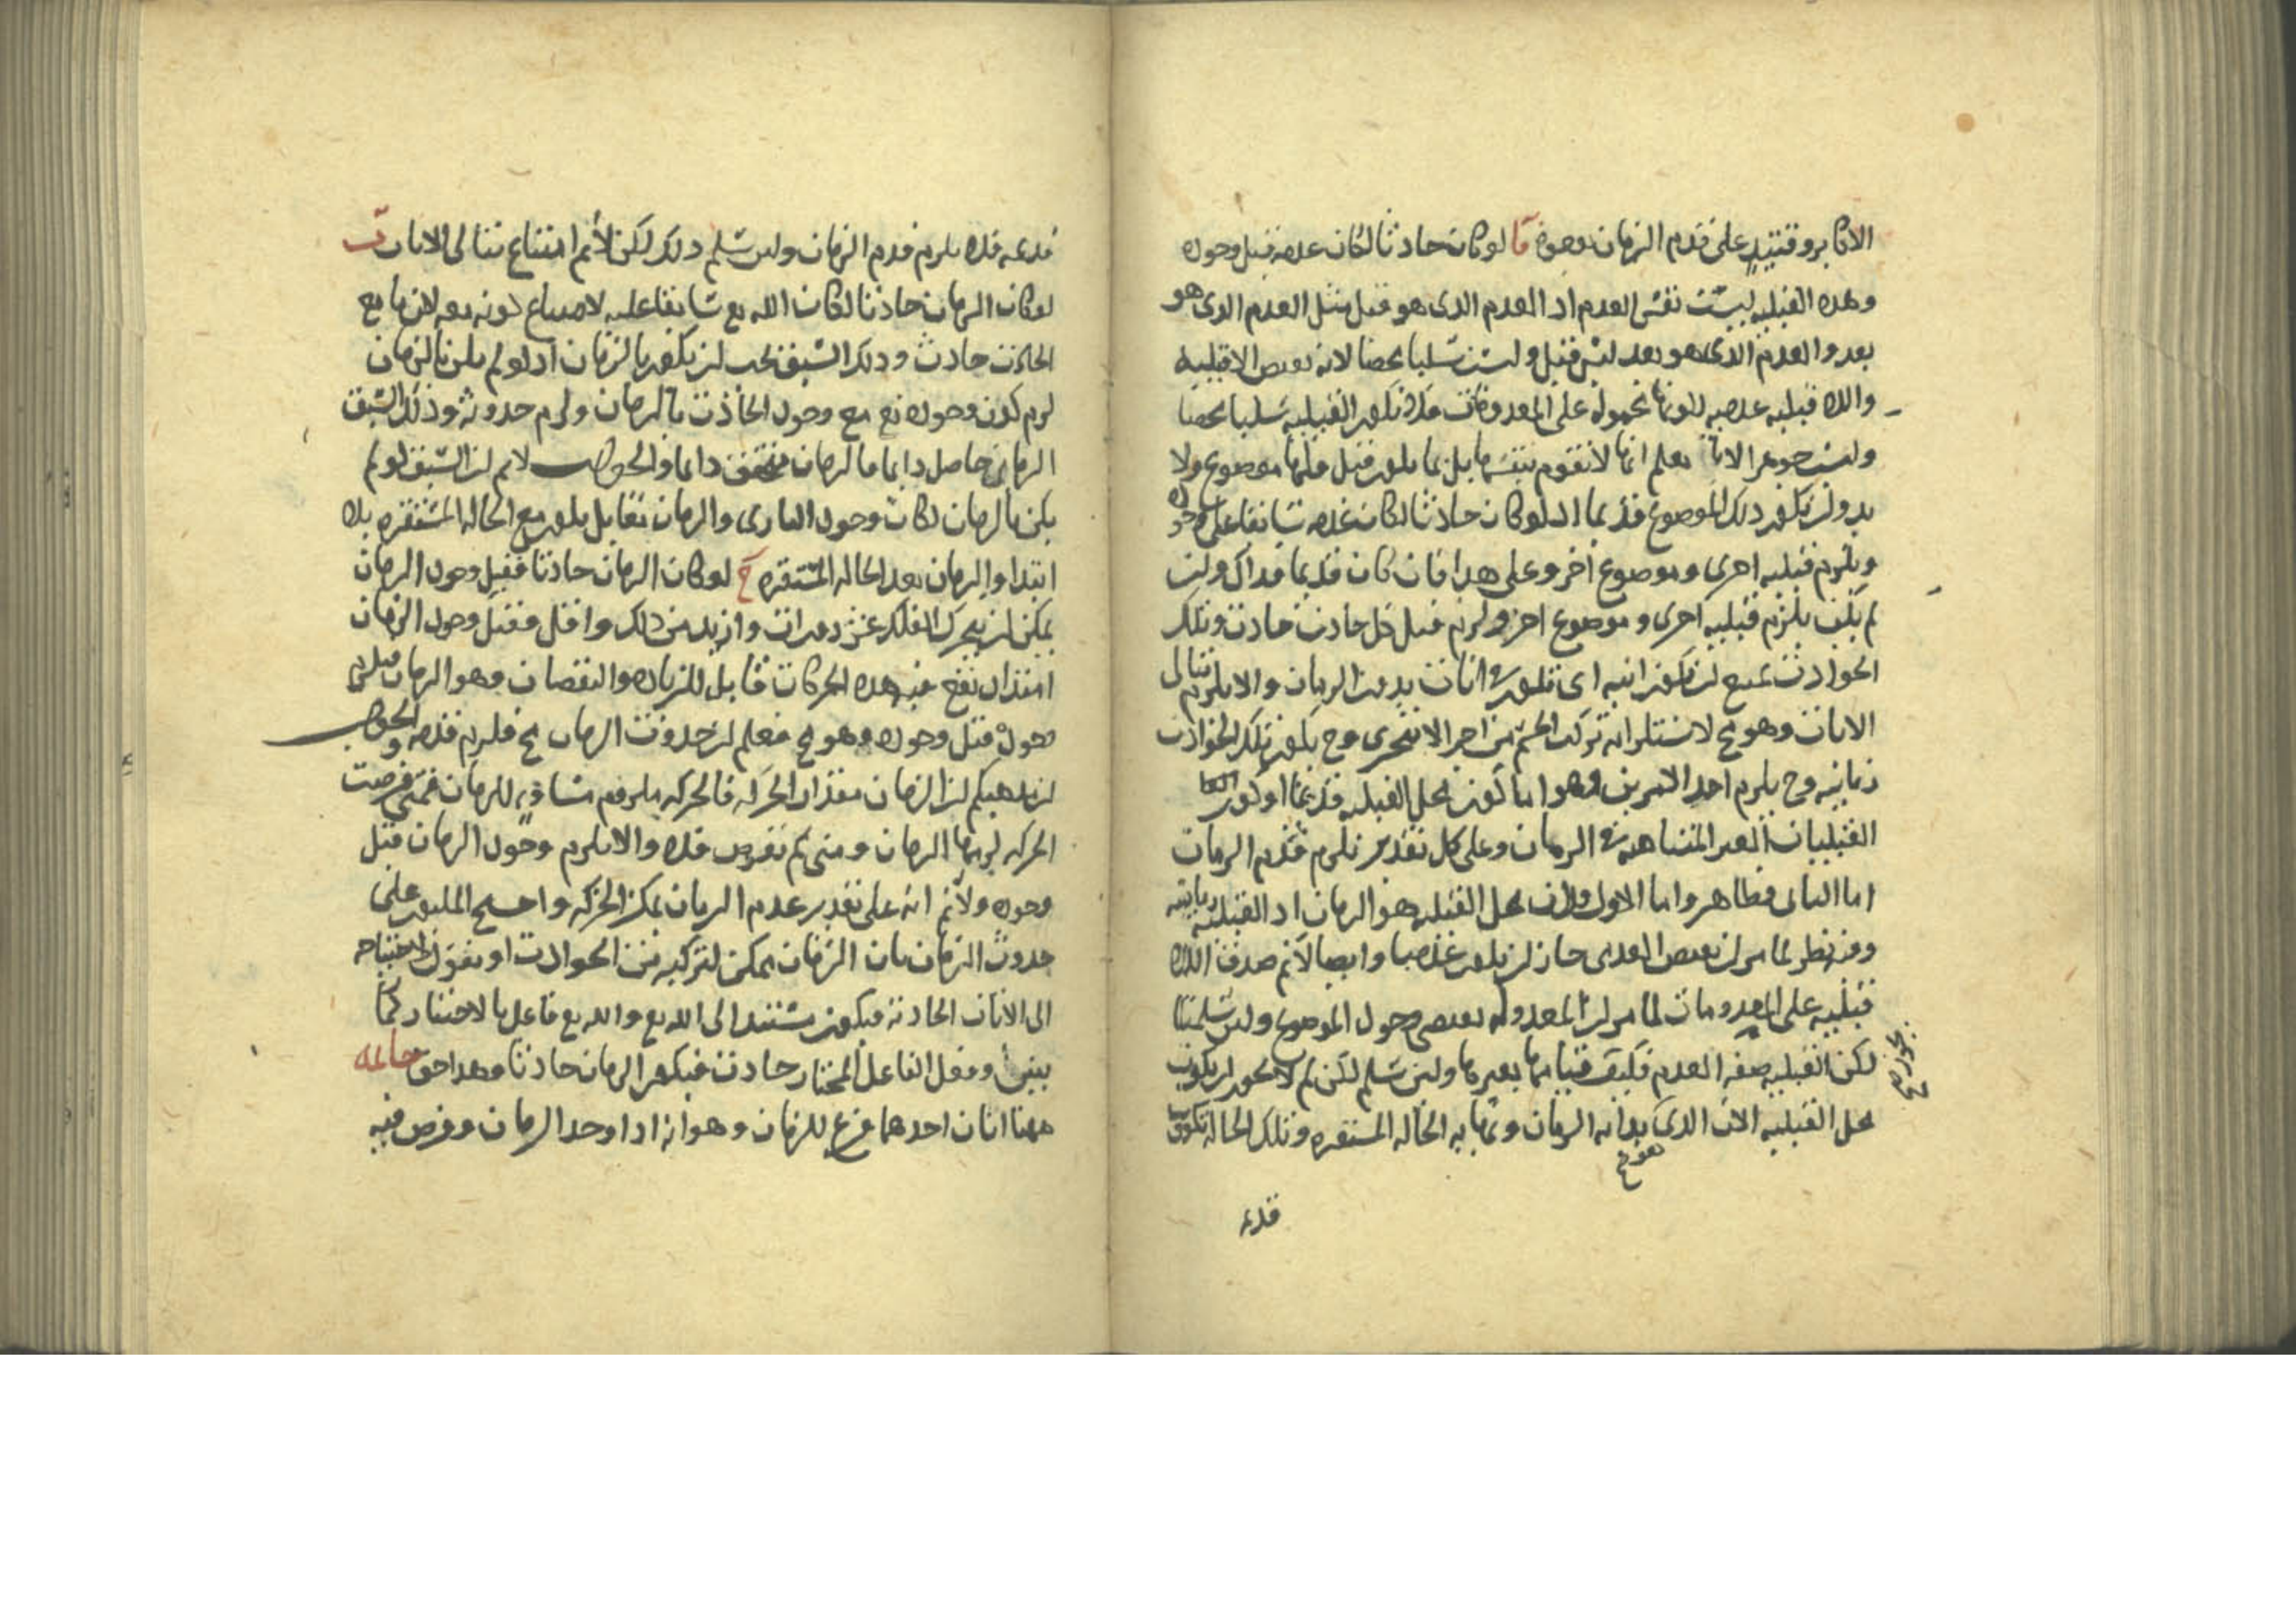 الاكابر وقتئذ على قدم الزمان بوجوه آ لو كان حادثا لكان عدمه قبل وجوده
وهذه القبليه ليست نفس العدم اذ العدم الذى هو قبل مثل العدم الذى هو
بعد والعدم الذى هو بعد ليس قبل وليست سلبا محضا لانه نقيض الاقبليه
واللا قبليه عدميه لكونها محموله على المعدومات فلا تكون القبليه سلبا محضا
وليست جوهرا لانا نعلم انها لا تقوم بنفسها بل بما يكون قبل فلها موضوع ولا
بد ولن يكون ذلك الموضوع قديما اذ لو كان حادثا لكان عدمه سابقا على وجوده
ويلزم قبليه اخرى وموضوع اخر وعلى هذا فان كان قديما فذاك ولن
لم يكن يلزم قبليه اخرى وموضوع اخر ولزم قبل كل حادث حادث وتلك
الحوادث يمتنع لن تكون انيه اى تكون فى انات بدون الزمان والا يلزم تتالى
الانات وهو مح لاستلزامه تركب الجسم من اجزا لا تتجزى وح يكون تلك الحوادث
زمانيه وح يلزم احد الامرين وهو اما كون محل القبليه قديما او كون
القبليات الغير المتناهيه فى الزمان وعلى كل تقدير يلزم قدم الزمان
اما الثانى فظاهر واما الاول فلان محل القبليه هو الزمان اذ القبليه زمانيه
وفيه نظر لما مر لن نقيض العدمى جاز لن يكون عدميا وايضا لانم صدق اللا
قبليه على المعدومات لما مر لن المعدوله تقتضى وجود الموضوع ولئن سلمنا
لكن القبليه صفه العدم فكيف قيامها بغيرها ولئن سلم لكن لم لا يجوز لن يكون
محل القبليه الان الذى بدايه الزمان ونهايه الحاله المستقره وتلك الحاله تكون
قديمه
قديمه فلا يلزم قدم الزمان ولئن سلم ذلك لكن لانم امتناع تتالى الانات ب
لو كان الزمان حادثا لكان الله تع سابقا عليه لامتناع كونه معه لان ما مع
الحادث حادث وذلك السبق يجب لن يكون بالزمان اذ لو لم يكن بالزمان
لزم كون وجوده تع مع وجود الحادث بالزمان ولزم حدوثه وذلك السبق
الزمانى حاصل دايما فالزمان متحقق دايما والجواب لانم لن السبق لو لم
يكن بالزمان لكان وجود البارى والزمان تقابل يكون مع الحاله المستقره بلا
ابتدا والزمان بعد الحاله المستقره ج لو كان الزمان حادثا فقبل وجود الزمان
يمكن لن يتحرك الفلك عشر دورات وازيد من ذلك واقل فقبل وجود الزمان
امتداد تقع فيه هذه الحركات قابل للزياده والنقصان وهو الزمان فيلزم
وجوده قبل وجوده وهو مح فعلم لن حدوث الزمان مح فلزم قدمه والجواب
لن مذهبكم لن الزمان مقدار الحركه فالحركه ملزومه مساويه للزمان فمتى فرضت
الحركه لزمها الزمان ومتى لم تفرض فلا والا يلزم وجود الزمان قبل
وجوده ولانم انه على تقدير عدم الزمان يمكن الحركه واحتج المليون على
حدوث الزمان بان الزمان يمكن لتركبه من الحوادث او نقول لاحتياجه
الى الانات الحادثه فيكون مستندا الى الله تع والله تع فاعل بالاختيار كما
يبين وفعل الفاعل المختار حادث فيكون الزمان حادثا وهذا حق خاتمه
ههنا انان احدهما فرع للزمان وهو انه اذا وجد الزمان وفرض فيه